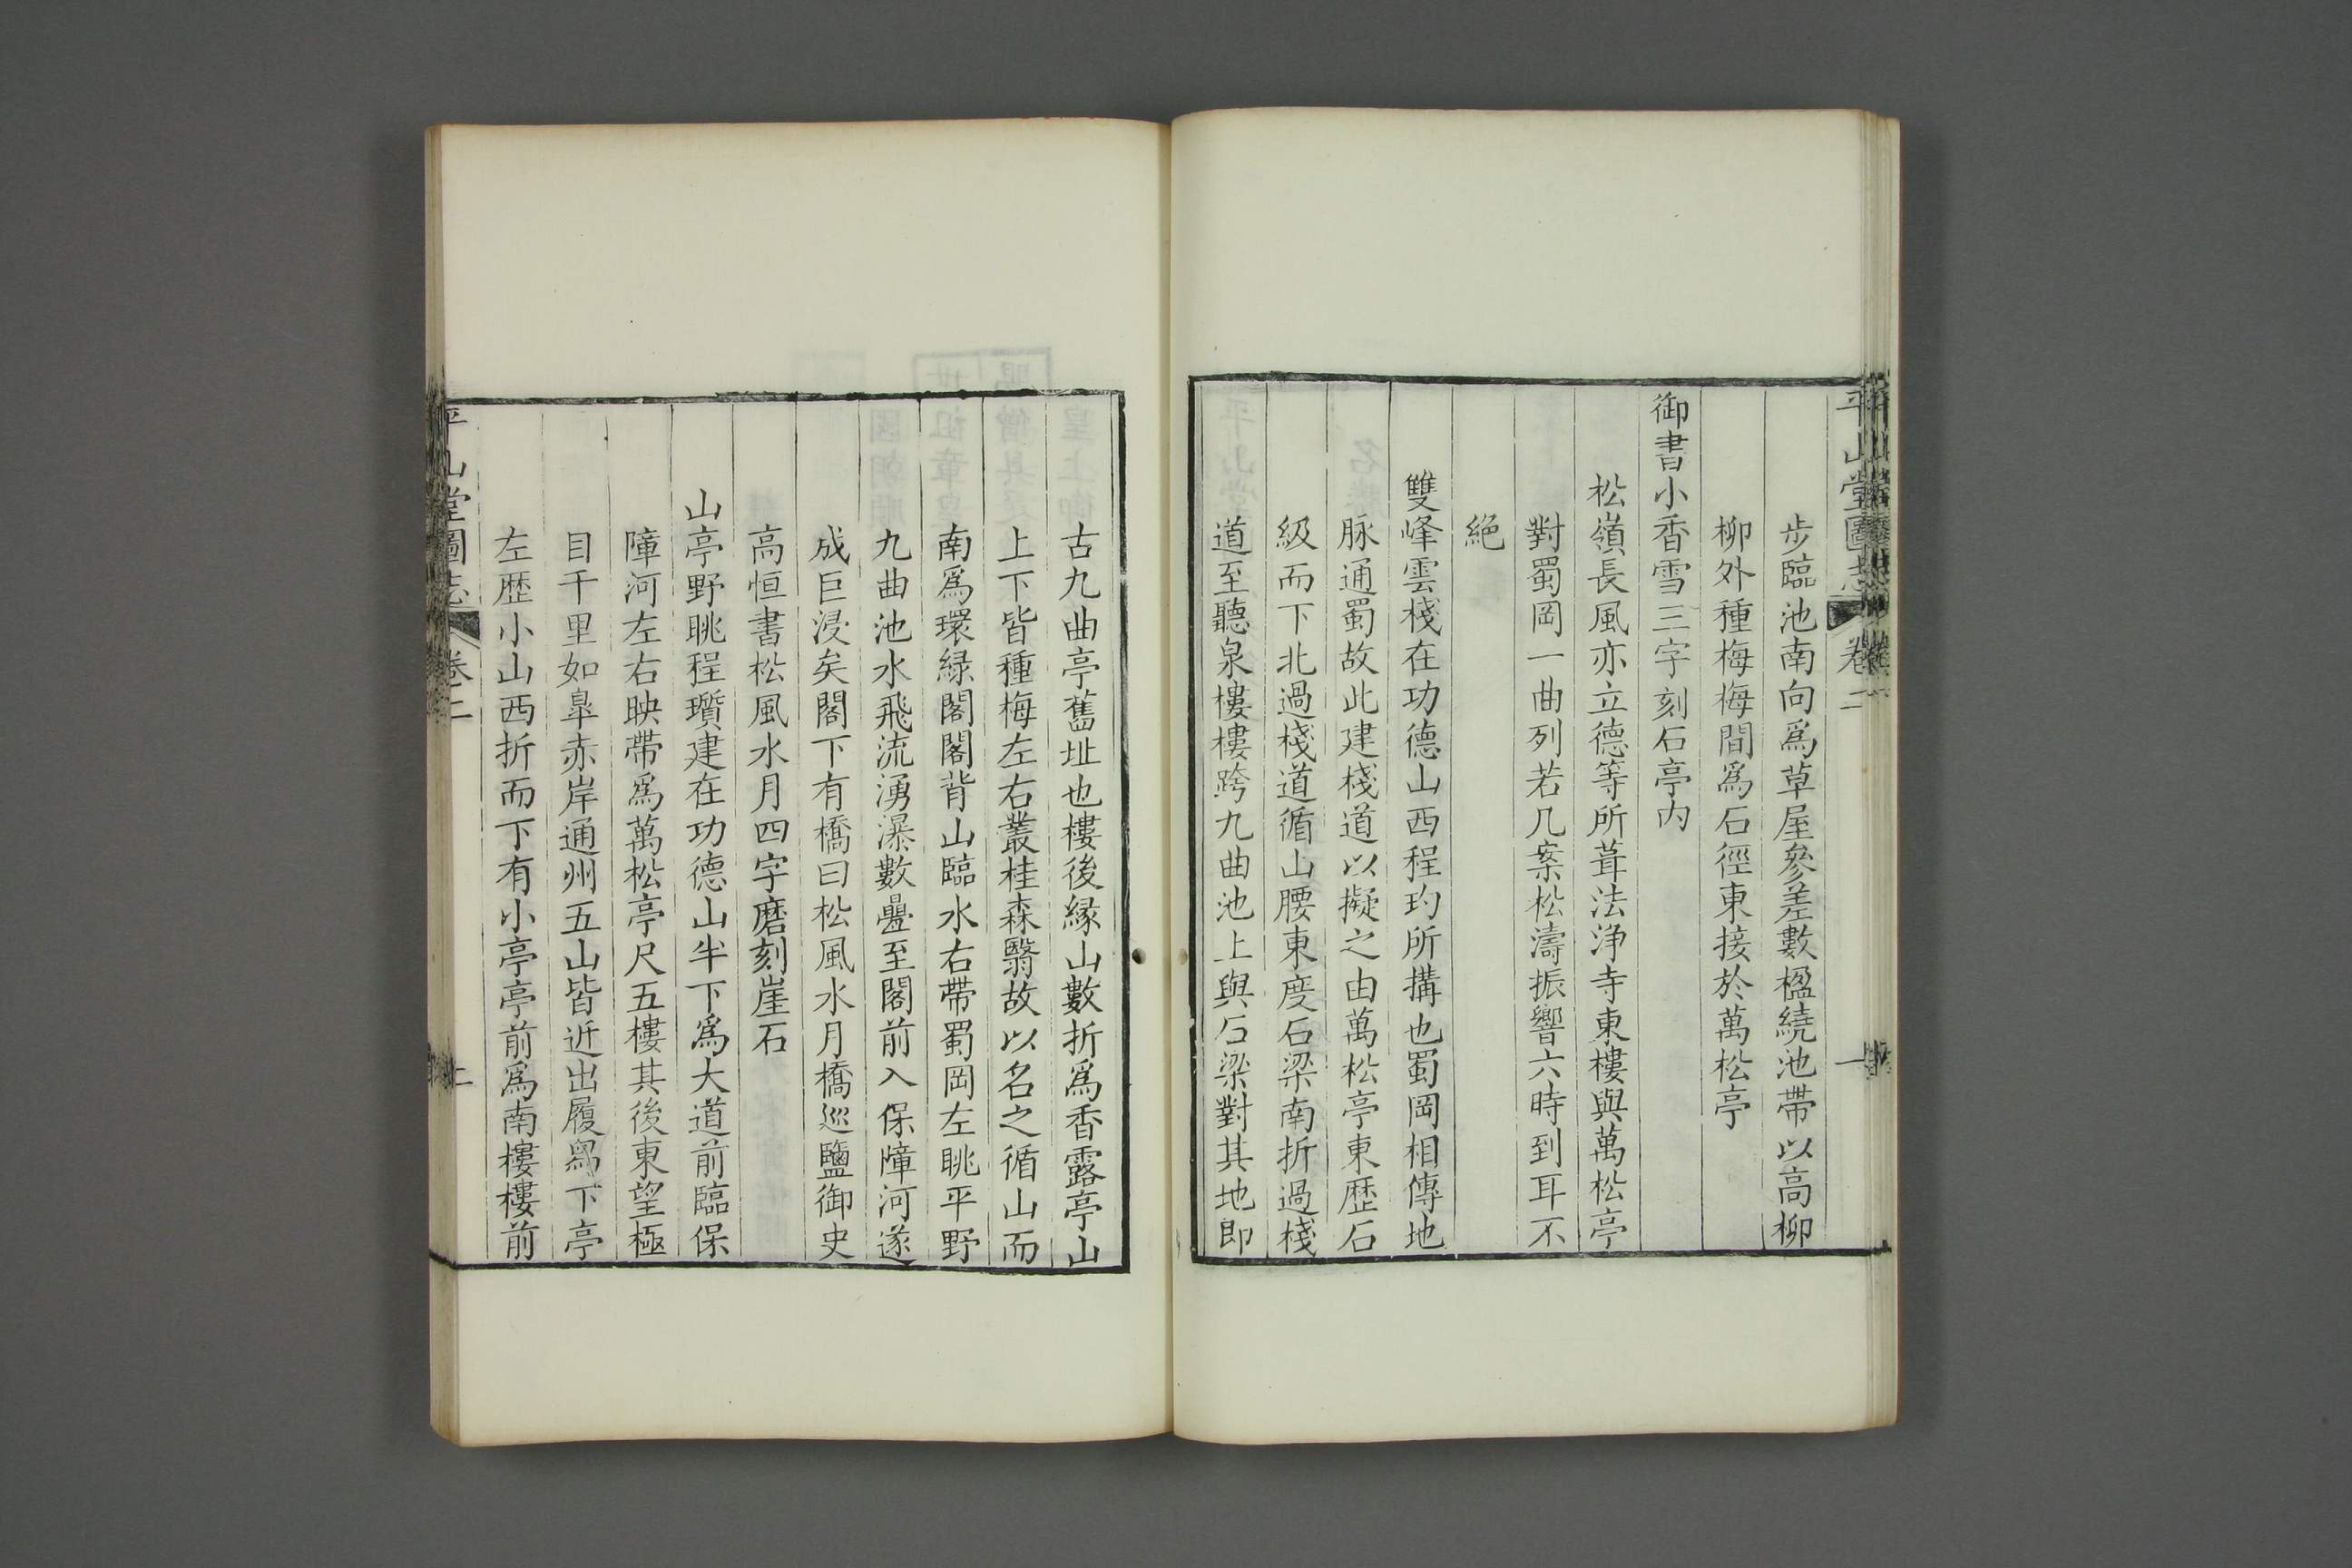 平山堂圖志 卷二 一
步臨池南向爲草屋參差數楹繞池帶以高柳
柳外種梅梅間爲石徑東接於萬松亭
御書小香雪三字刻石亭内
松嶺長風亦立德等所葺法淨寺東樓與萬松亭
對蜀岡一曲列若几案松濤振響六時到耳不
絕
雙峰雲棧在功德山西程玓所搆也蜀岡相傳地
脉通蜀故此建棧道以擬之由萬松亭東歷石
級而下北過棧道循山腰東度石梁南折過棧
道至聽泉樓樓跨九曲池上與石梁對其地即
古九曲亭舊址也樓後緣山數折爲香露亭山
上下皆種梅左右叢桂森翳故以名之循山而
南爲環綠閣閣背山臨水右帶蜀岡左眺平野
九曲池水飛流湧瀑數疊至閣前入保障河遂
成巨浸矣閣下有橋曰松風水月橋巡鹽御史
高恒書松風水月四字磨刻崖石
山亭野眺程瓚建在功德山半下爲大道前臨保
障河左右映帶爲萬松亭尺五樓其後東望極
目千里如臯赤岸通州五山皆近出履舄下亭
左歷小山西折而下有小亭亭前爲南樓樓前
平山堂圖志 卷二